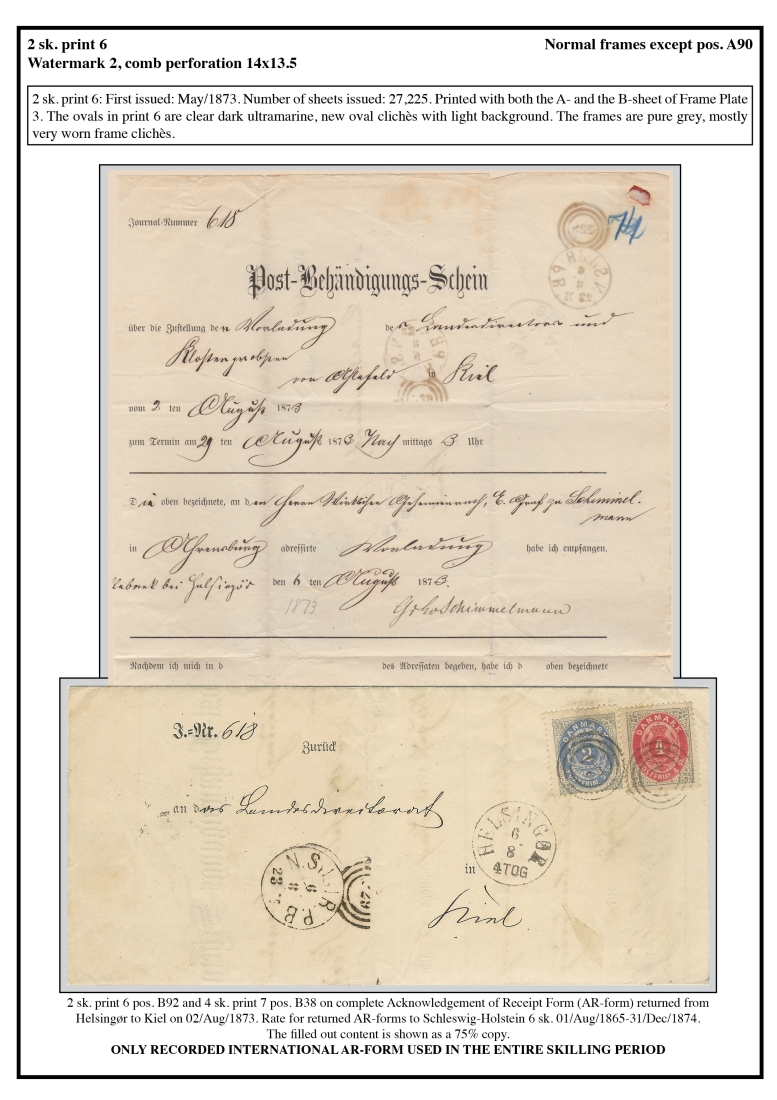 2 sk. print 6
Normal frames except pos. A90
Watermark 2, comb perforation 14x13.5
2 sk. print 6: First issued: May/1873. Number of sheets issued: 27,225. Printed with both the A- and the B-sheet of Frame Plate
3. The ovals in print 6 are clear dark ultramarine, new oval clichès with light background. The frames are pure grey, mostly
very worn frame clichès.
Journal-Nummer 618
Post-Behändigungs-Schein
über die Zustellung den Vorladung des Landesdirectors und
Klosterprobsten
von Ahlefeld in Kiel
vom 2 ten August 1873
zum Termin am 29 ten August 1873 Nachmittags 3 Uhr
Die oben bezeichnete, an den Herrn Wirklichen Geheimenrath, E. Graf zu Schimmel-
mann
in Ahrensburg adressirte Vorladung habe ich empfangen.
bei Helsingör den 6 ten August 1873.
1873
Schimmelmann
Nachdem ich mich in d des Adressaten begeben, habe ich d oben bezeichnete
J.-Nr. 618
Zurück
an das Landesdirectorat
in
Kiel
DANMARK
2
DANMARK
4
HELSINGØR
6
8
4TOG
N.SJ.JR.P.B
6
8
2 sk. print 6 pos. B92 and 4 sk. print 7 pos. B38 on complete Acknowledgement of Receipt Form (AR-form) returned from
Helsingør to Kiel on 02/Aug/1873. Rate for returned AR-forms to Schleswig-Holstein 6 sk. 01/Aug/1865-31/Dec/1874.
The filled out content is shown as a 75% copy.
ONLY RECORDED INTERNATIONAL AR-FORM USED IN THE ENTIRE SKILLING PERIOD